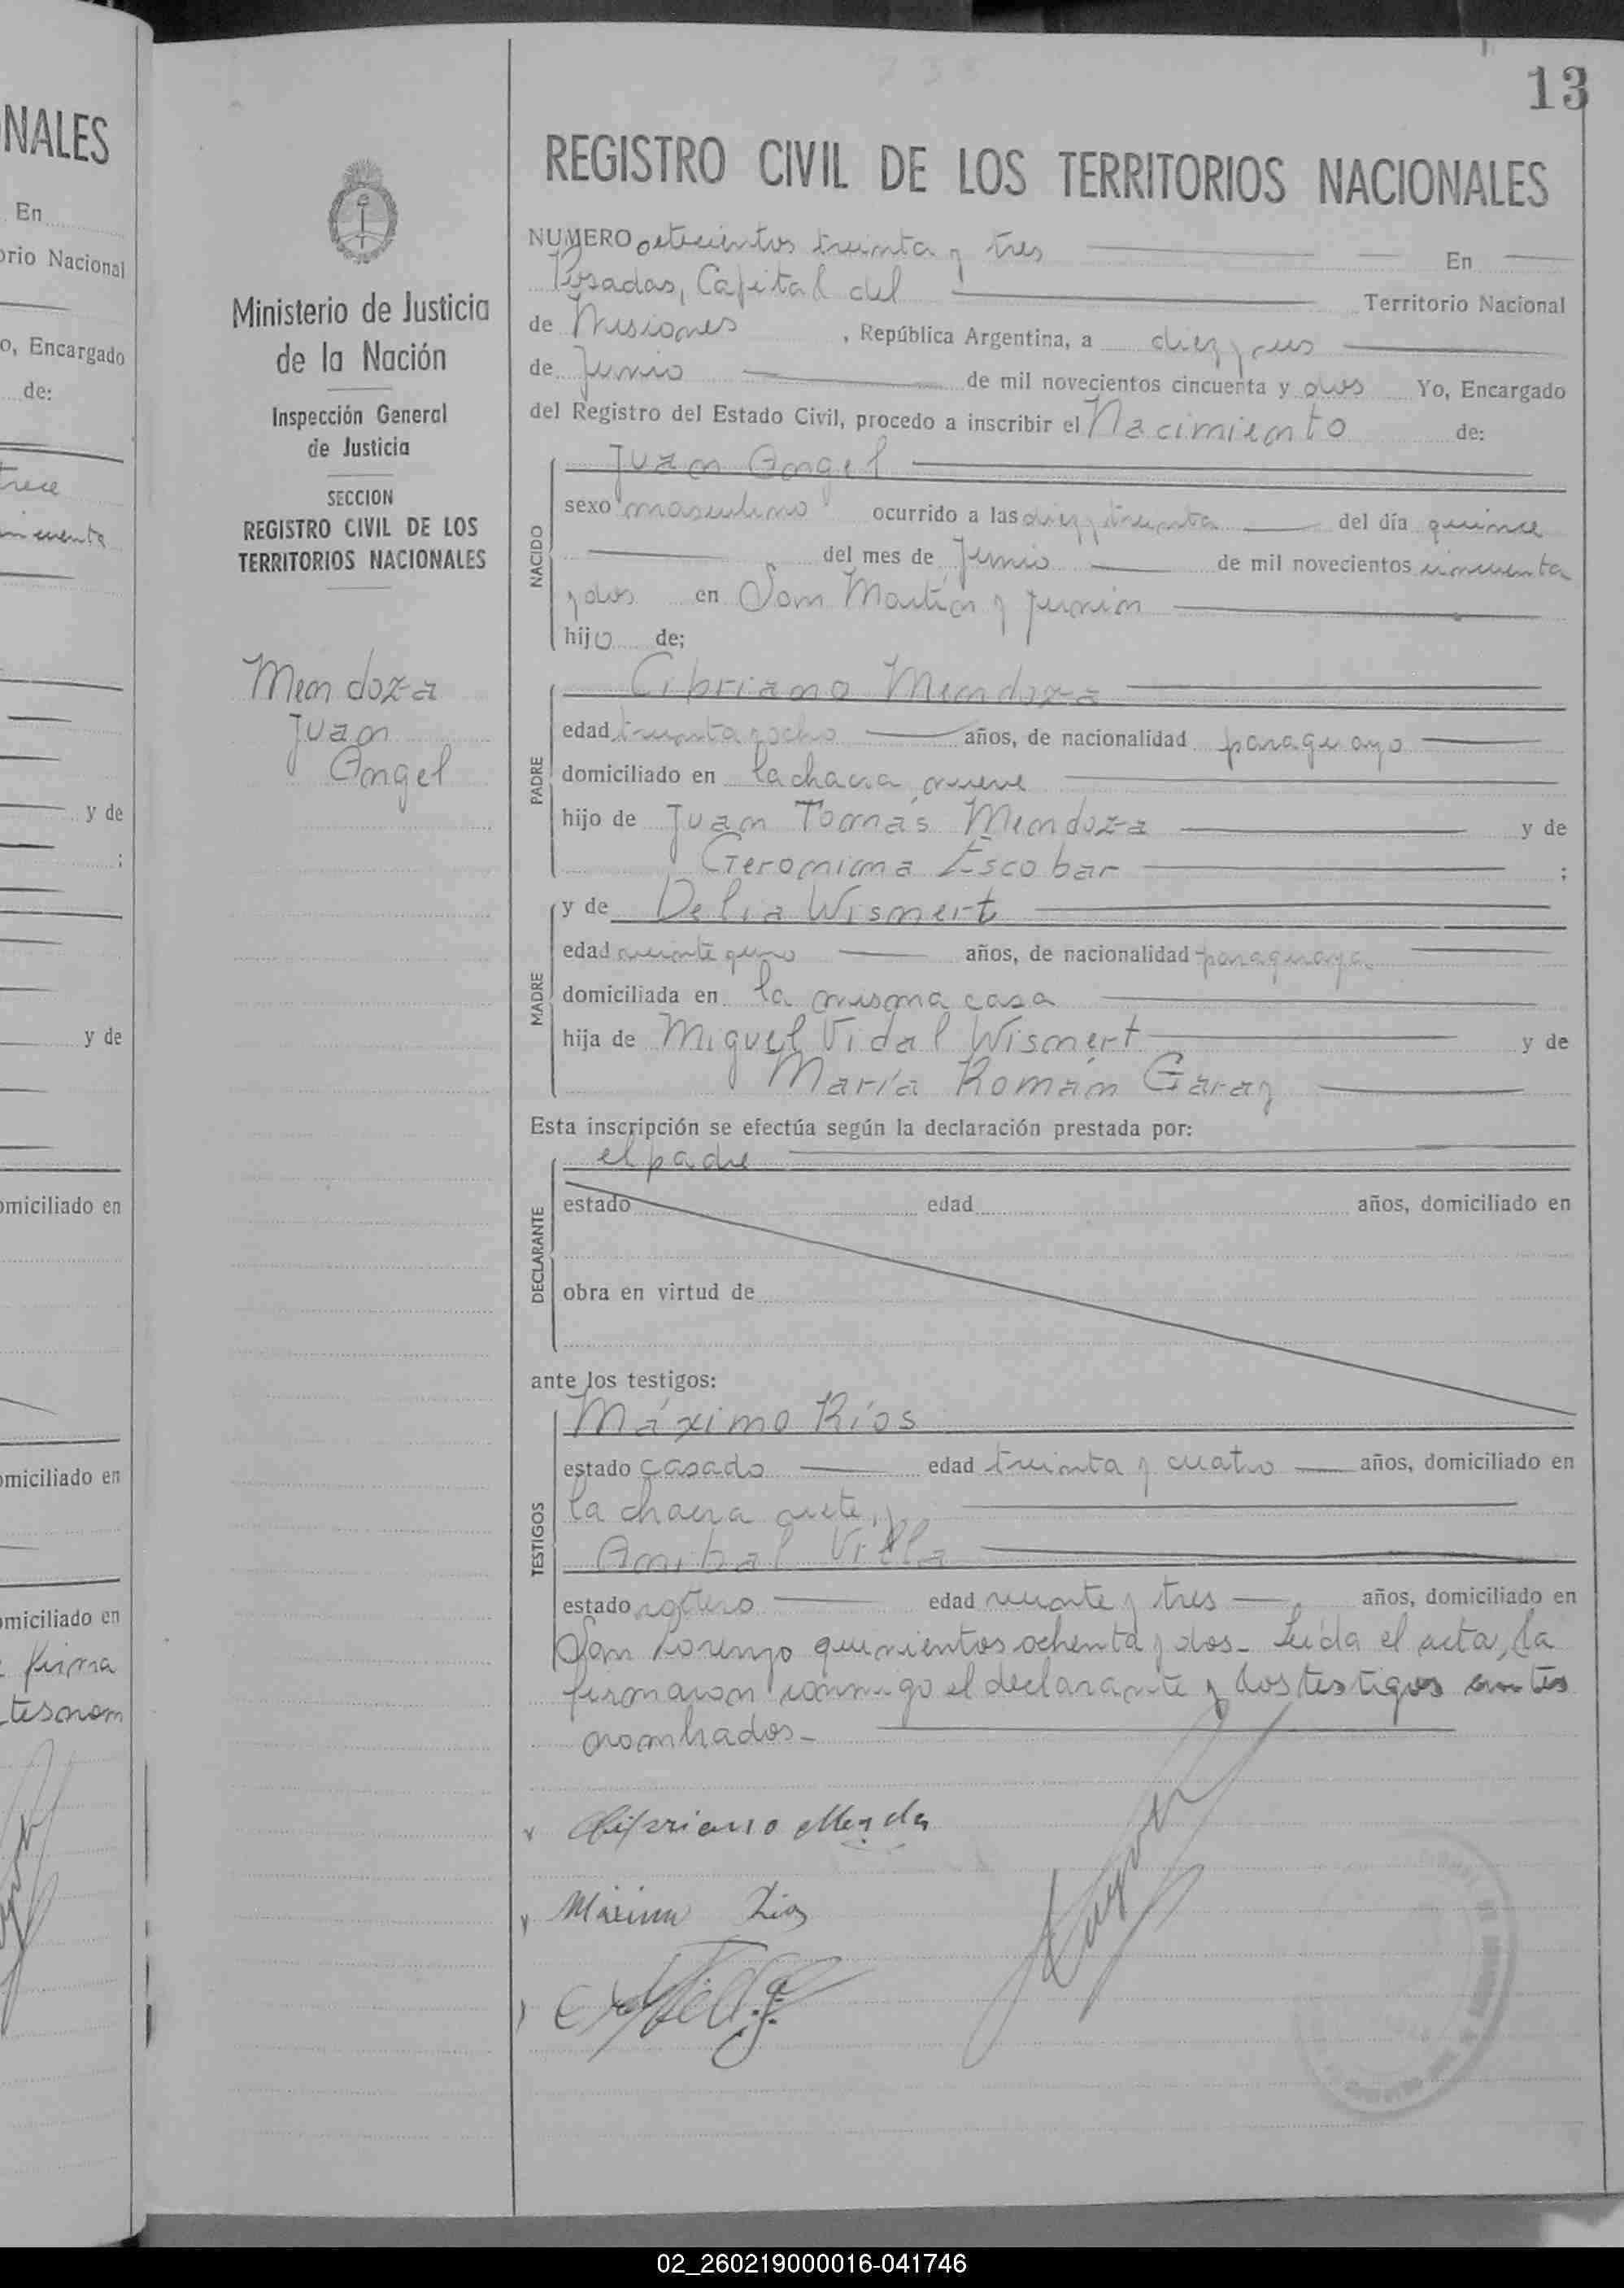 NALES
En
orio Nacional
o, Encargado
de:
trece
y de
;
y de
omiciliado en
omiciliado en
omiciliado en
firma
13
REGISTRO CIVIL DE LOS TERRITORIOS NACIONALES
Ministerio de Justicia
de la Nación
Inspección General
de Justicia
SECCION
REGISTRO CIVIL DE LOS
TERRITORIOS NACIONALES
Mendoza
Juan
Angel
NUMERO setecientos treinta y tres En
Posadas, Capital del Territorio Nacional
de Misiones , República Argentina, a diez y seis
de Junio de mil novecientos cincuenta y dos Yo, Encargado
del Registro del Estado Civil, procedo a inscribir el Nacimiento de:
NACIDO
Juan Angel
sexo masculino ocurrido a las diez y treinta del día quince
del mes de Junio de mil novecientos cincuenta
y dos en San Martín y Junín
hijo de;
PADRE
Cipriano Mendoza
edad treinta y ocho años, de nacionalidad paraguayo
domiciliado en la chacra nueve
hijo de Juan Tomás Mendoza y de
Geronima Escobar ;
MADRE
y de Delia Wismert
edad veinte y uno años, de nacionalidad paraguaya
domiciliada en la misma casa
hija de Miguel Vidal Wismert y de
María Román Garay
Esta inscripción se efectúa según la declaración prestada por:
DECLARANTE
el padre
estado edad años, domiciliado en
obra en virtud de
ante los testigos:
TESTIGOS
Máximo Ríos
estado casado edad treinta y cuatro años, domiciliado en
la chacra siete, y
Anibal Villa
estado soltero edad veinte y tres años, domiciliado en
San Lorenzo quinientos ochenta y dos.- Leída el acta, la
firmaron conmigo el declarante y los testigos antes
nombrados.-
Máximo Rios
02_260219000016-041746